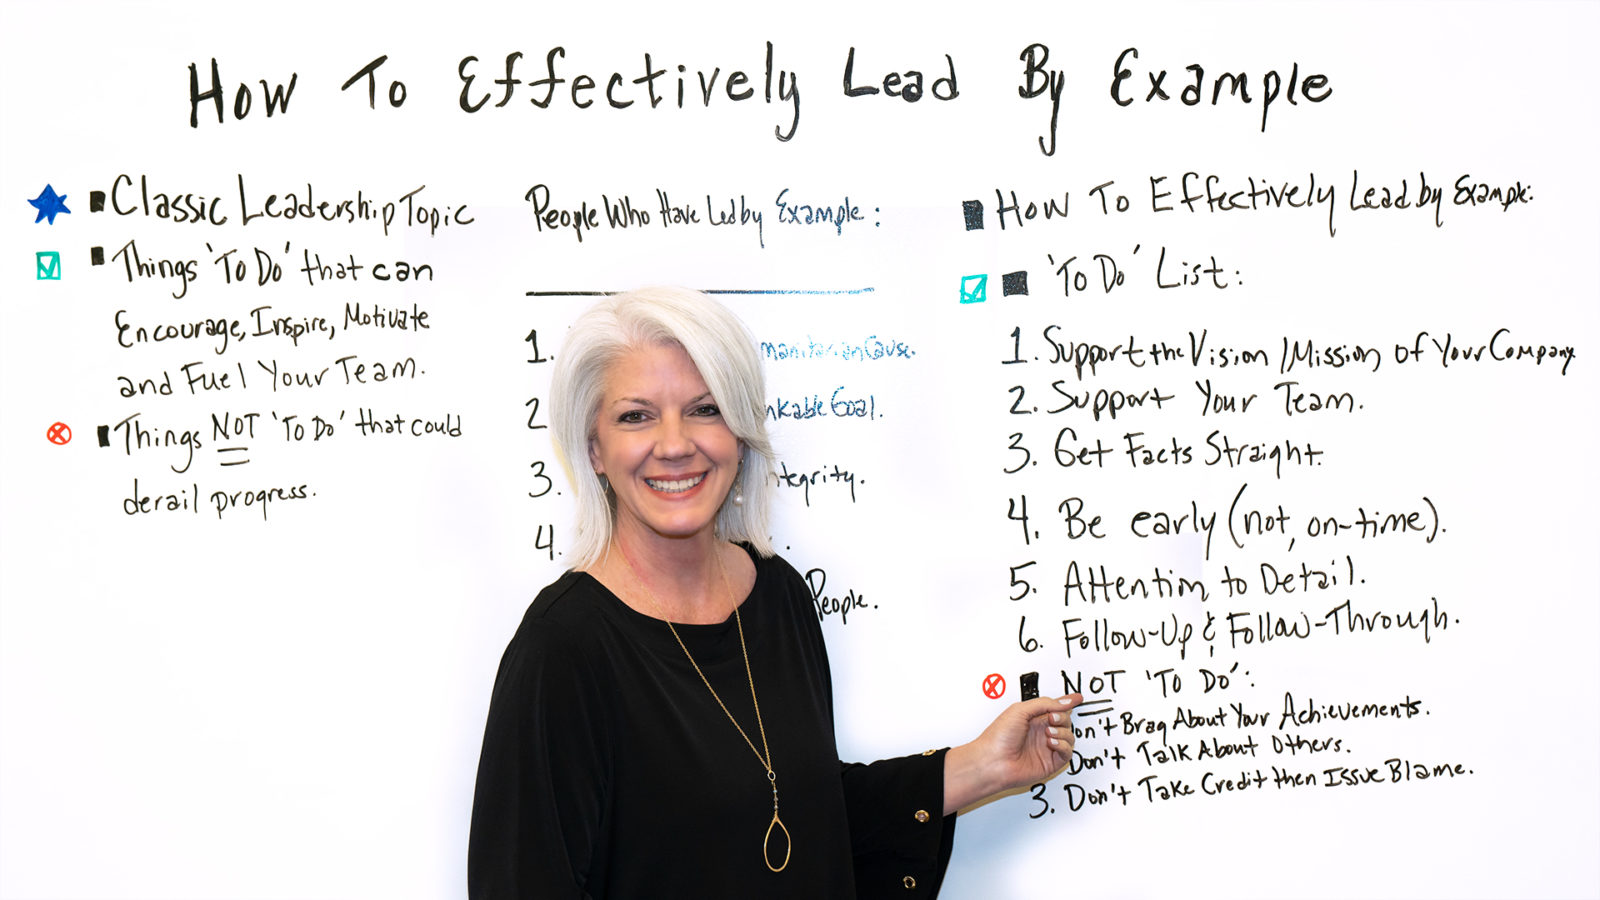 How To Effectively Lead By Example
Classic Leadership Topic
Things 'To Do' that can
Encourage, Inspire, Motivate
and Fuel Your Team.
Things NOT 'To Do' that could
derail progress.
People Who Have Led by Example:
1.
Cause.
2
Goal.
3.
4.
People.
How To Effectively Lead by Example:
'To Do' List:
1. Support the Vision/Mission of Your Company
2. Support Your Team.
3. Get Facts Straight.
4. Be early (not, on-time).
5. Attention to Detail.
6. Follow-Up & Follow-Through.
NOT 'To Do':
Brag About Your Achievements.
Don't Talk About Others.
3. Don't Take Credit then Issue Blame.